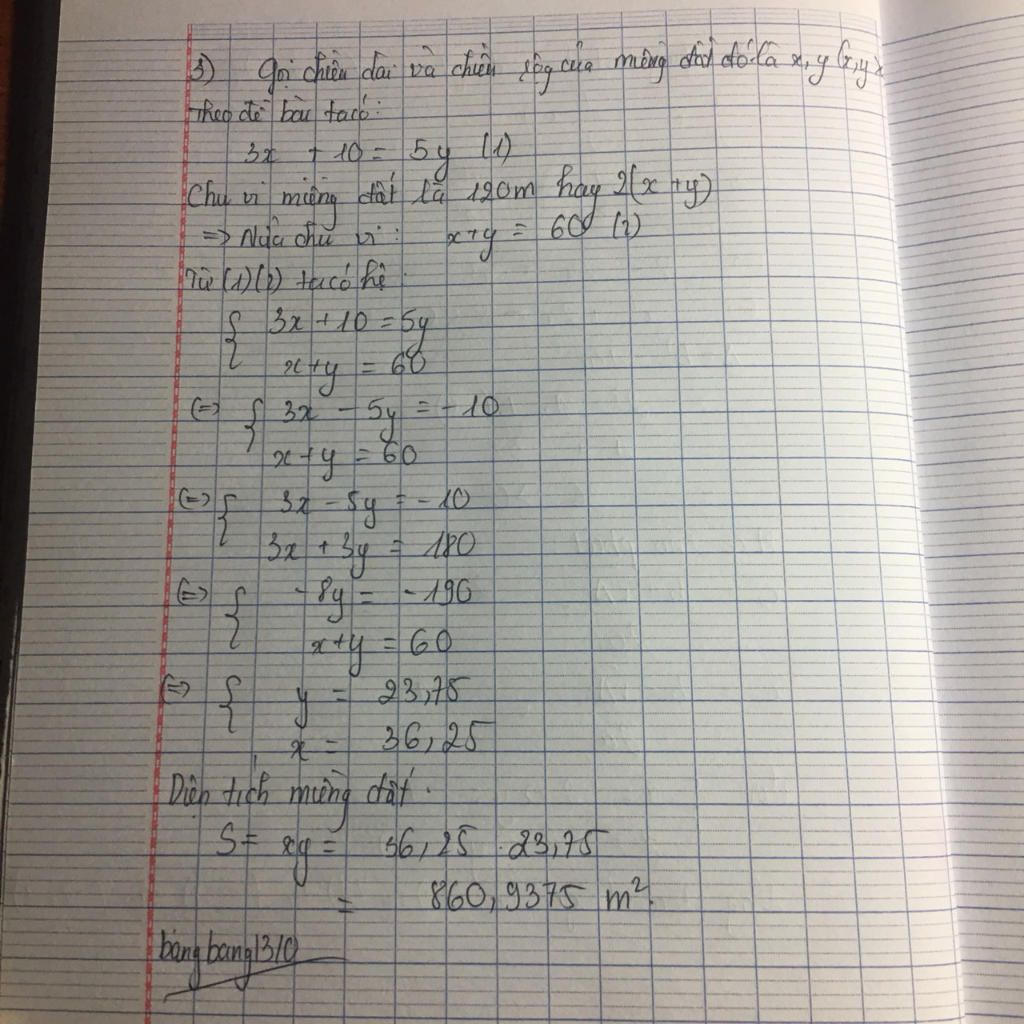 3) Gọi chiều dài và chiều rộg của miếng đất đó là x, y (x,y>
Theo đề bài ta có:
3x + 10 = 5y (1)
Chu vi miếng đất là 120m hay 2(x+y)
=> Nửa chu vi: x+y = 60 (2)
Từ (1)(2) ta có hệ:
{ 3x + 10 = 5y
x+y = 60
(=) { 3x - 5y = -10
x+y = 60
(=) { 3x - 5y = -10
3x + 3y = 180
(=) { -8y = -190
x+y = 60
(=) { y = 23,75
x = 36,25
Diện tích miếng đất.
S = xy = 36,25 . 23,75
= 860,9375 m².
bangbang1310